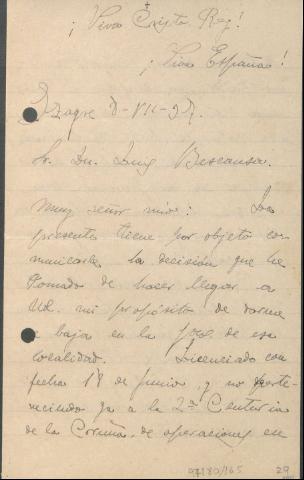 ¡Viva Cristo Rey!
¡Viva España!
8-VII-37.
Sr. Dn. Luis Bescansa.
Muy señor mío: La
presente tiene por objeto co-
municarle la decisión que he
tomado de hacer llegar a
Ud. mi propósito de darme
de baja en la de esa
localidad. Licenciado con
fecha 18 de junio, y no perte-
neciendo ya a la 2ª Centuria
de la Coruña, de operaciones en
97180/165
29